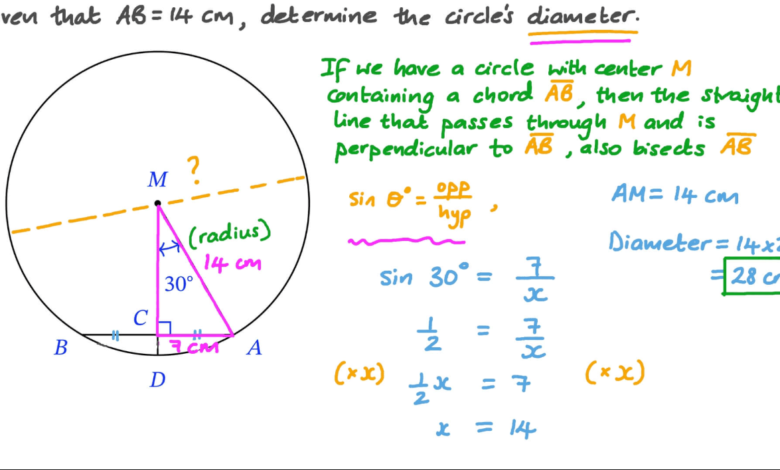 ven that AB = 14 cm, determine the circle's diameter.
If we have a circle with center M
containing a chord AB, then the straight
line that passes through M and is
perpendicular to AB, also bisects AB
M
?
(radius)
14 cm
30°
C
7 cm
B
A
D
sin θ° = opp/hyp ,
sin 30° = 7/x
1/2 = 7/x
(×x) 1/2 x = 7 (×x)
x = 14
AM = 14 cm
Diameter = 14×2
= 28 c